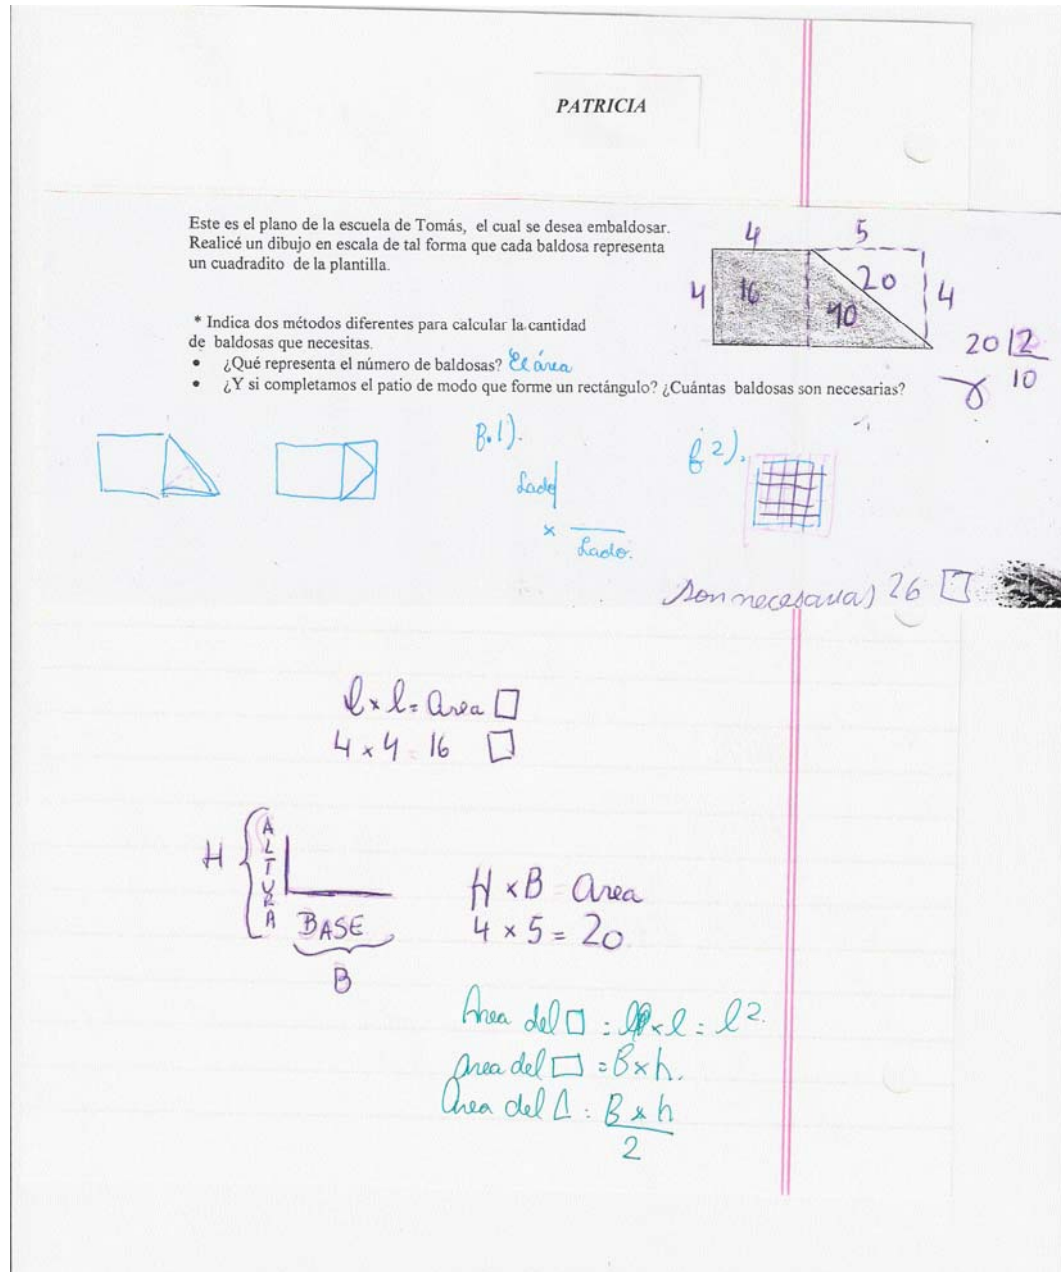 PATRICIA
Este es el plano de la escuela de Tomás, el cual se desea embaldosar.
Realicé un dibujo en escala de tal forma que cada baldosa representa
un cuadradito de la plantilla.
4 5
4 16 20 4
10
20 2
10
* Indica dos métodos diferentes para calcular la cantidad
de baldosas que necesitas.
• ¿Qué representa el número de baldosas? El área
• ¿Y si completamos el patio de modo que forme un rectángulo? ¿Cuántas baldosas son necesarias?
1).
Lado
×
Lado.
2).
son necesarias 26
l × l = area
4 × 4 = 16
H ALTURA
BASE
B
H × B = area
4 × 5 = 20
Area del □ = l × l = l².
area del ▭ = B × h.
Area del △ = B × h
2